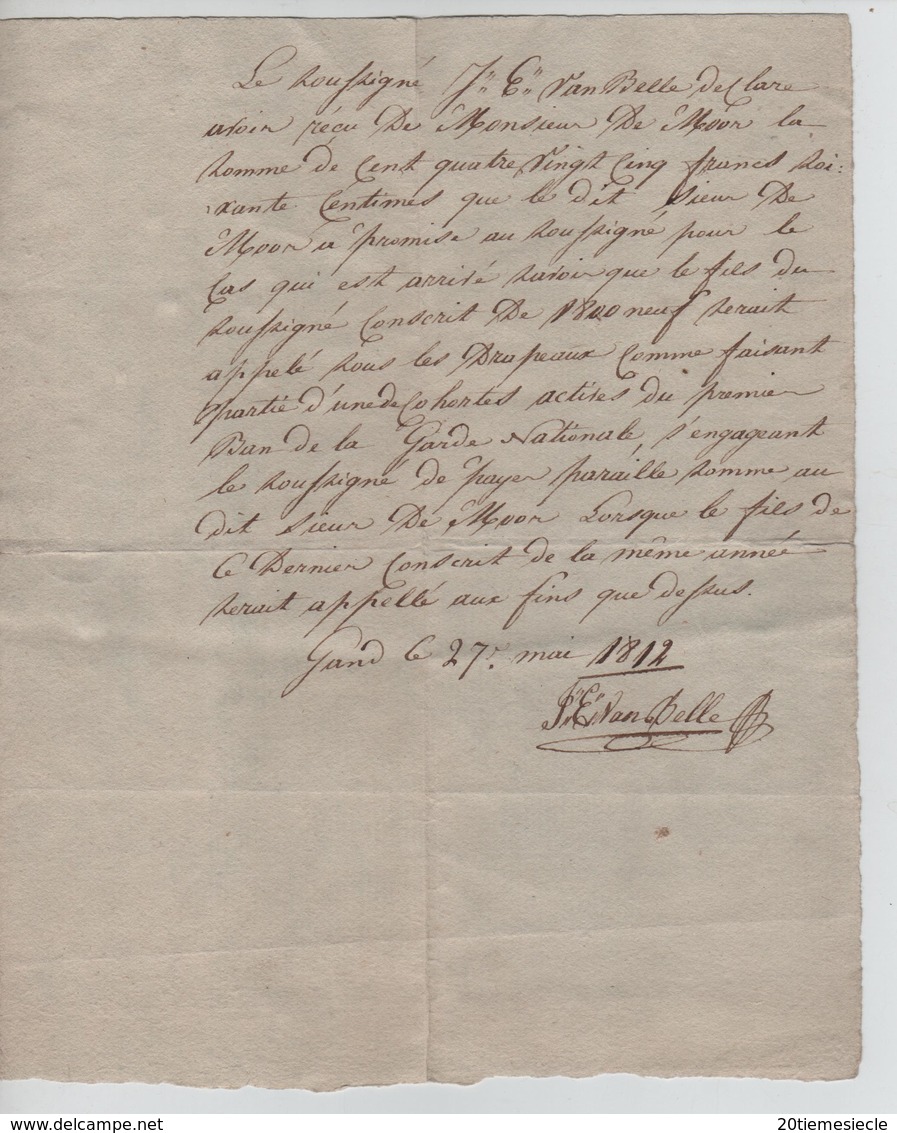 Le soussigné Jn En Van Belle declare
avoir récu De Monsieur De Moor la
somme de Cent quatre Vingt Cinq francs soi:
xante Centimes que le dit Sieur De
Moor a promise au soussigné pour le
Cas qui est arrivé savoir que le fils du
soussigné Conscrit De 1800 neuf serait
appelé sous les Drapeaux Comme faisant
partie d'une de Cohortes actives du premier
Ban de la Garde Nationale, s'engageant
le soussigné de payer paraille somme au
dit Sieur De Moor Lorsque le fils de
Ce Dernier Conscrit de la même année
serait appellé aux fins que dessus.
Gand Ce 27. mai 1812
Jn En Van Belle
20tiemesiecle
www.delcampe.net